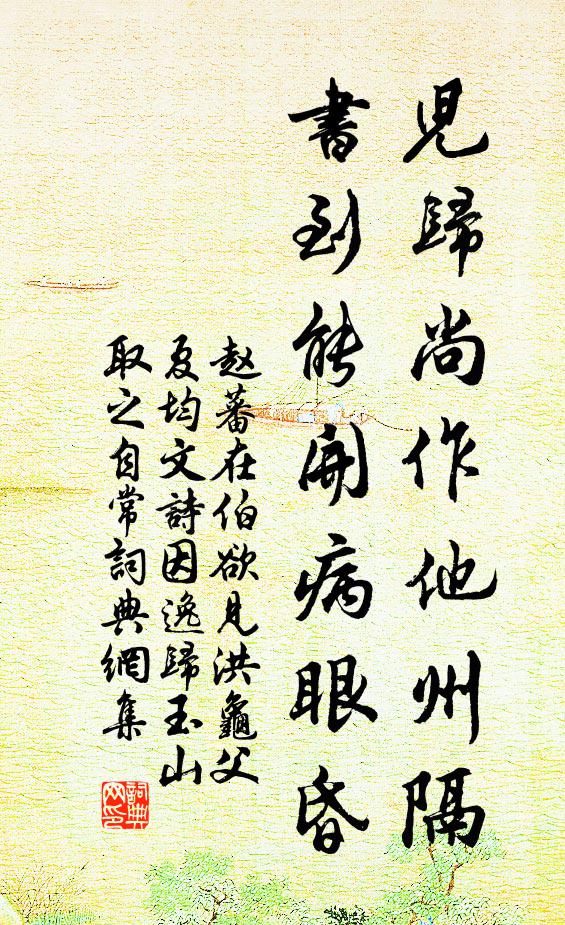 児歸尚作他州隔
書到能開病眼昏
赵蕃在伯欲見洪龜父
夏均文詩因逸歸玉山
取之自常詞典網集
詞典网印